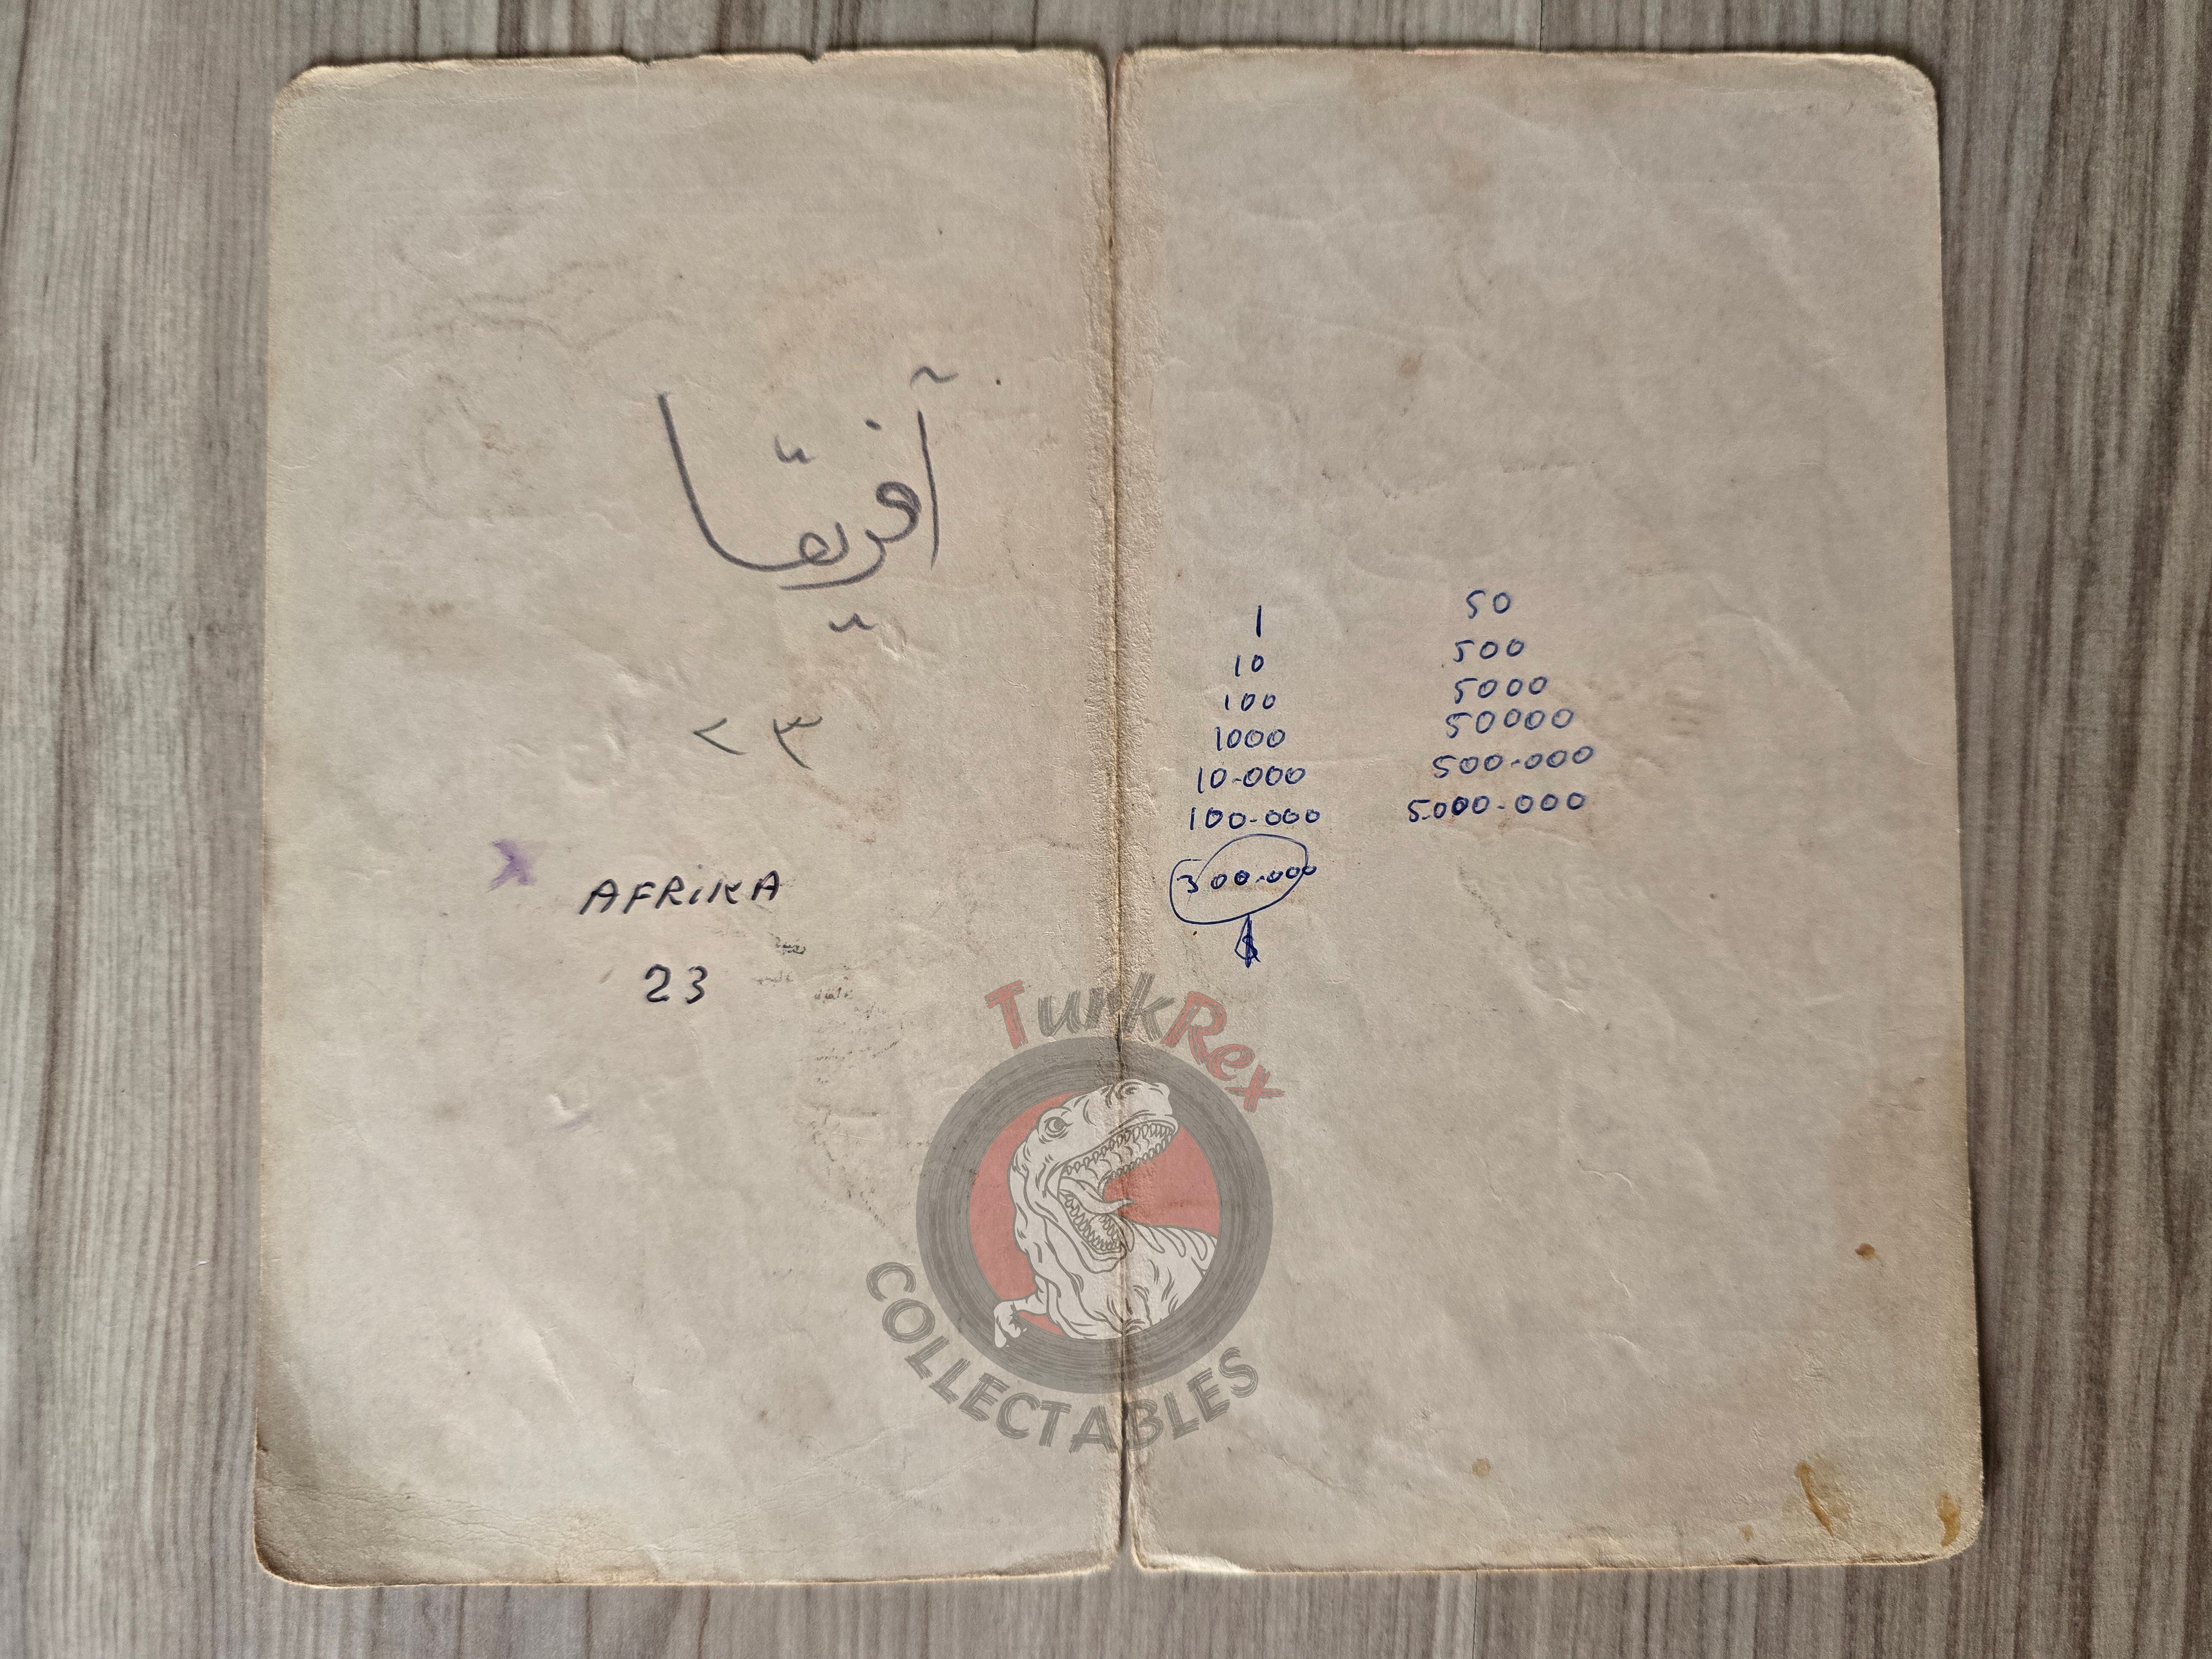 آفريقا
٢٣
AFRiKA
23
1 50
10 500
100 5000
1000 50000
10.000 500.000
100.000 5.000.000
300.000
$
TurkRex
COLLECTABLES